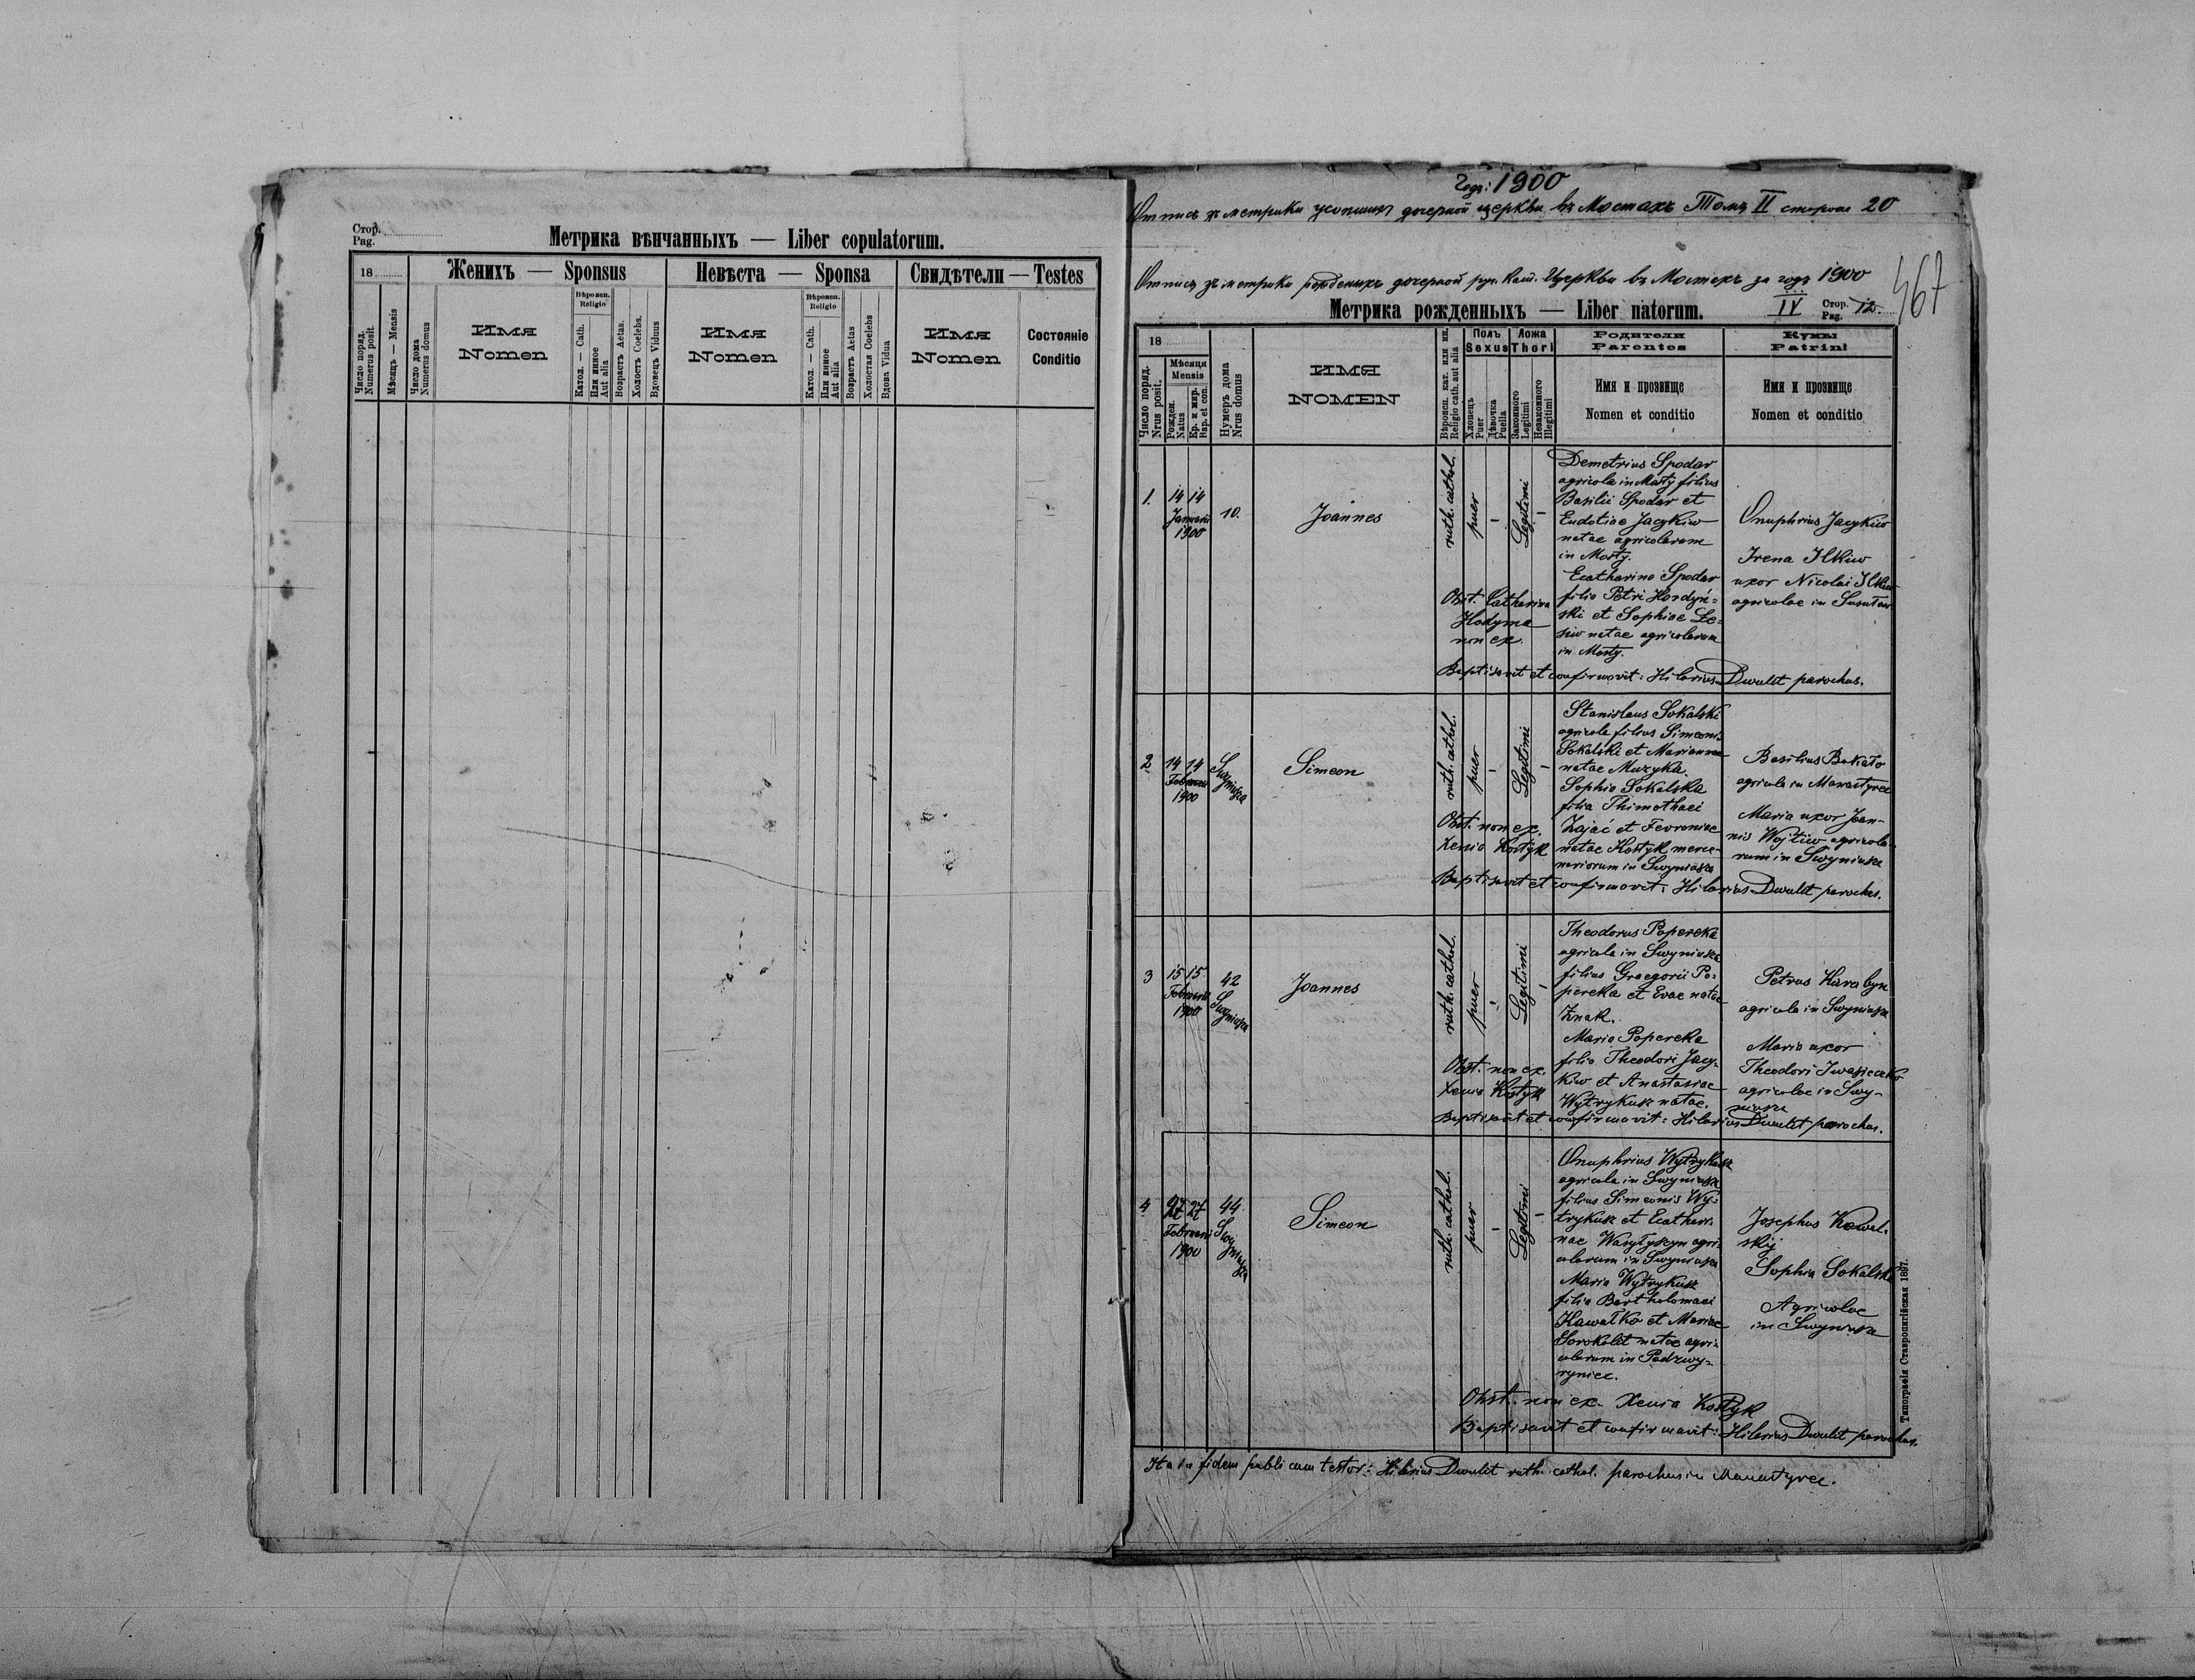 Стор.
Pag.
Метрика вѣнчанныхъ — Liber copulatorum.
18
Женихъ — Sponsus
Невѣста — Sponsa
Свидѣтели — Testes
Число поряд.
Numerus posit.
Мѣсяцъ — Mensis
Число дома
Numerus domus
Имя
Nomen
Вѣроисп.
Religio
Катол. — Cath.
Или инное
Aut alia
Возрастъ Aetas.
Холостъ Coelebs.
Вдовецъ Viduus
Имя
Nomen
Вѣроисп.
Religio
Катол. — Cath.
Или инное
Aut alia
Возрастъ Aetas
Холостая Coelebs
Вдова Vidua
Имя
Nomen
Состоянiе
Conditio
Годъ: 1900
Отпись зъ метрики усопшихъ дочерной церкви въ Мостахъ Томъ II сторона 20
Отпись зъ метрики рожденихъ дочерной рус. кат. Церкви въ Мостахъ за годъ 1900
467
Метрика рожденныхъ — Liber natorum.
IV
Стор.
Pag. 12.
18
Число поряд.
Nrus posit.
Мѣсяця
Mensis
Рожден.
Natus
Кр. и мир.
Bap. et con.
Нумеръ дома
Nrus domus
ИМЯ
NOMEN
Вѣроисп. кат. или ин.
Religio cath. aut alia
Полъ
Sexus
Хлопецъ
Puer
Дѣвочка
Puella
Ложа
Thori
Законного
Legitimi
Незаконного
Illegitimi
Родители
Parentes
Имя и прозвище
Nomen et conditio
Кумы
Patrini
Имя и прозвище
Nomen et conditio
1.
14 14
Januarii
1900
10.
Joannes
ruth. cathol.
puer
-
Legitimi
-
Demetrius Spodar
agricola in Mosty filius
Basilii Spodar et
Eudotiae Jacykiw
natae agricolarum
in Mosty.
Ecatharina Spodar
filia Petri Hordyń=
ski et Sophiae Le=
siw natae agricolarum
in Mosty.
Onuphrius Jacykiw
Irena Ilkiw
uxor Nicolai Ilkiw
agricolae in
Obst. Catharina
Hodyma
non ex.
Baptisavit et confirmavit: Hilarius Dwulit parochus.
2
14 14
Februarii
1900
Swyniusza
Simeon
ruth. cathol.
puer
-
Legitimi
-
Stanislaus Sokalski
agricola filius Simeonis
Sokalski et Marianna
natae Muzyka.
Sophia Sokalska
filia Thimothaei
Zając et Fevroniae
natae Kostyk merce-
nariorum in Swyniusza
Basilius Bakało
agricola in Manastyrec
Maria uxor Joan-
nis Wojtiw agricola-
rum in Swyniusza
Obst. non ex.
Xenia Kostyk
Baptisavit et confirmavit: Hilarius Dwulit parochus.
3
15 15
Februarii
1900
42
Swyniusza
Joannes
ruth. cathol.
puer
-
Legitimi
-
Theodorus Popereka
agricola in Swyniusza
filius Graegorii Po=
pereka et Evae natae
Znak.
Maria Popereka
filia Theodori Jacy-
kiw et Anastasiae
Wytrykusz natae.
Petrus Harabyn
agricola in Swyniusza
Maria uxor
Theodori Iwasieczko
agricolae in Swy-
niusza
Obst. non ex.
Xenia Kostyk
Baptisavit et confirmavit: Hilarius Dwulit parochus.
4
27 27
Februarii
1900
44
Swyniusza
Simeon
ruth. cathol.
puer
-
Legitimi
-
Onuphrius Wytrykusz
agricola in Swyniusza
filius Simeonis Wy-
trykusz et Ecathari-
nae Wasyłyszyn agri-
colarum in Swyniusza
Maria Wytrykusz
filia Bartholomaei
Kawałko et Mariae
Sorokolit natae agri-
colarum in Podzwy-
ryniec.
Josephus Kowal-
skij
Sophia Sokalska
Agricolae
in Swyniusza
Obst. non ex. Xenia Kostyk
Baptisavit et confirmavit: Hilarius Dwulit parochus.
Ita in fidem publicam testor: Hilarius Dwulit ruth. cathol. parochus in Manastyrec.
Типографія Ставропигійская 1897.